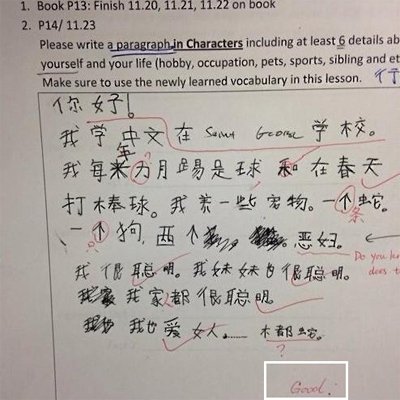 1. Book P13: Finish 11.20, 11.21, 11.22 on book
2. P14/ 11.23
Please write a paragraph in Characters including at least 6 details ab
yourself and your life (hobby, occupation, pets, sports, sibling and et
Make sure to use the newly learned vocabulary in this lesson.
你好!
我学中文在 Saint George 学校。
年
我每 月踢足球 在春天
打棒球。我养一些宠物。一个蛇。
条
一个狗,西个 恶妇。
Do you kn
does t
我很聪明。我妹妹也很聪明。
我家都很聪明。
我也爱女人…… 都蛇。
?
Good!